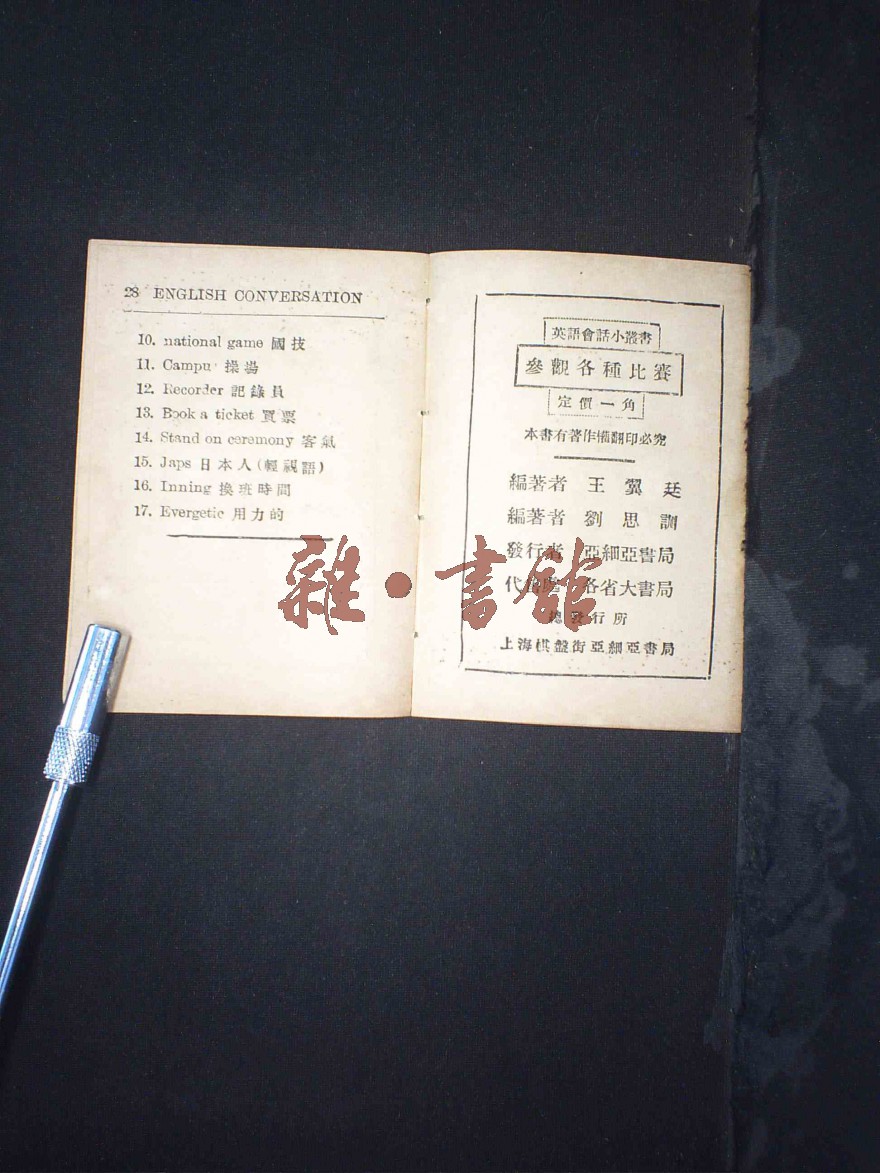 28 ENGLISH CONVERSATION
10. national game 國技
11. Campu 操場
12. Recorder 記錄員
13. Book a ticket 買票
14. Stand on ceremony 客氣
15. Japs 日本人(輕視語)
16. Inning 換班時間
17. Evergetic 用力的
英語會話小叢書
參觀各種比賽
定價一角
本書有著作權翻印必究
編著者 王翼廷
編著者 劉思訓
發行者 亞細亞書局
代售處 各省大書局
總發行所
上海棋盤街亞細亞書局
雜·書館